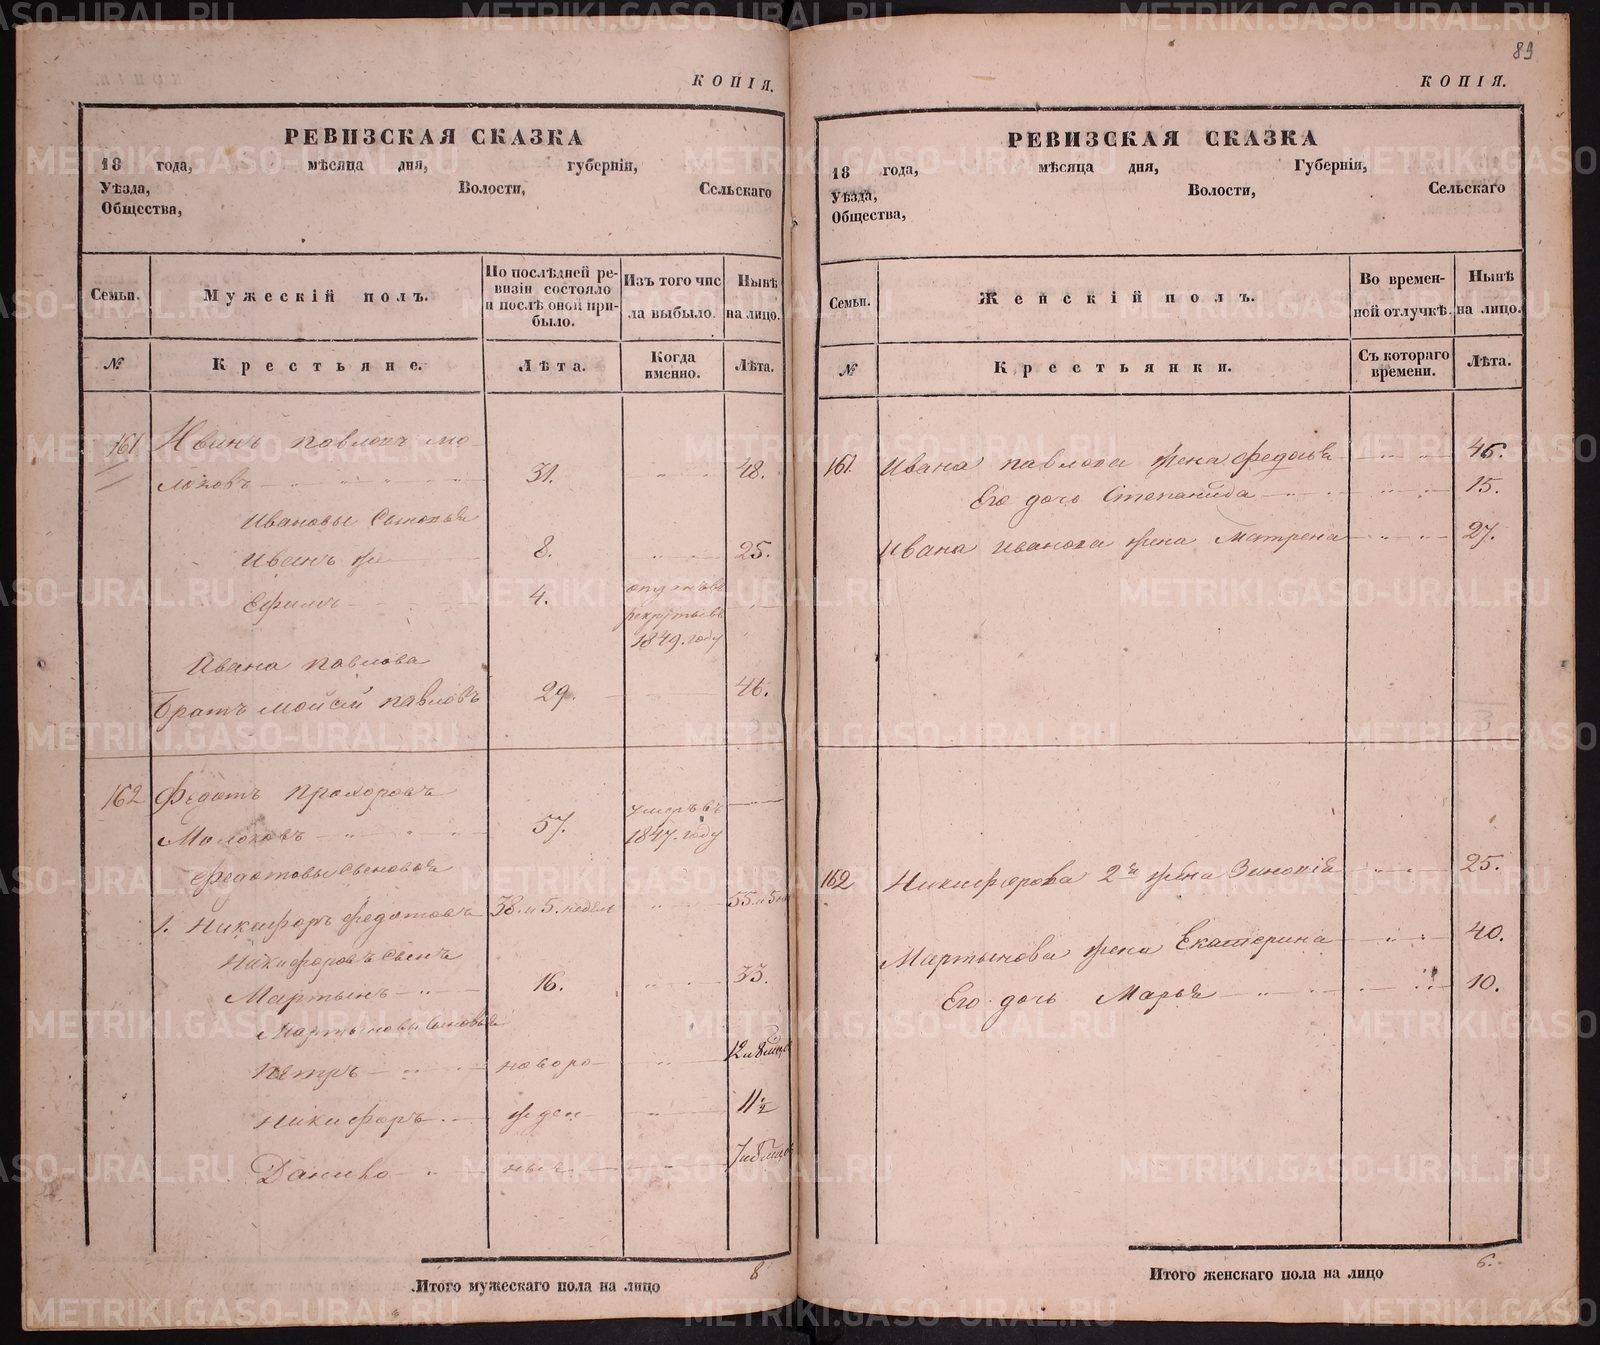 КОПІЯ.
РЕВИЗСКАЯ СКАЗКА
18 года, мѣсяца дня, губерніи,
Уѣзда, Волости, Сельскаго
Общества,
Семьи.
Мужескій полъ.
По послѣдней ре-
визіи состояло
и послѣ оной при-
было.
Изъ того чис
ла выбыло.
Нынѣ
на лицо.
№
Крестьяне.
Лѣта.
Когда
именно.
Лѣта.
161 Иванъ павловъ мо-
локовъ 31. 48.
Ивановы сыновья
Иванъ 8. 25.
Ефимъ 4.
рекруты въ
1849. году
Ивана павлова
Братъ мойсей павловъ 29. 46.
162 Федотъ Прохоровъ
Молоковъ 57. умеръ въ
1847. году
Федотовы сыновья
1. Никифоръ Федотовъ 38. и 5. недель 55. и 5
Никифоровъ сынъ
Мартынъ 16. 33.
Мартыновы сыновья
Петръ новоро 12 и 8 мцов
Никифоръ жден 11 1/2
Данило ныи 7 и 6 мцов
Итого мужескаго пола на лицо 8
89
КОПІЯ.
РЕВИЗСКАЯ СКАЗКА
18 года, мѣсяца дня, Губерніи,
Уѣзда, Волости, Сельскаго
Общества,
Семьи.
Женскій полъ.
Во времен-
ной отлучкѣ.
Нынѣ
на лицо.
№
Крестьянки.
Съ котораго
времени.
Лѣта.
161. Ивана павлова жена федосья 46.
Его дочь Степанида 15.
Ивана иванова жена Матрена 27.
162 Никифорова 2я жена Зиновія 25.
Мартынова жена Екатерина 40.
Его дочь Марья 10.
Итого женскаго пола на лицо 6.
METRIKI.GASO-URAL.RU